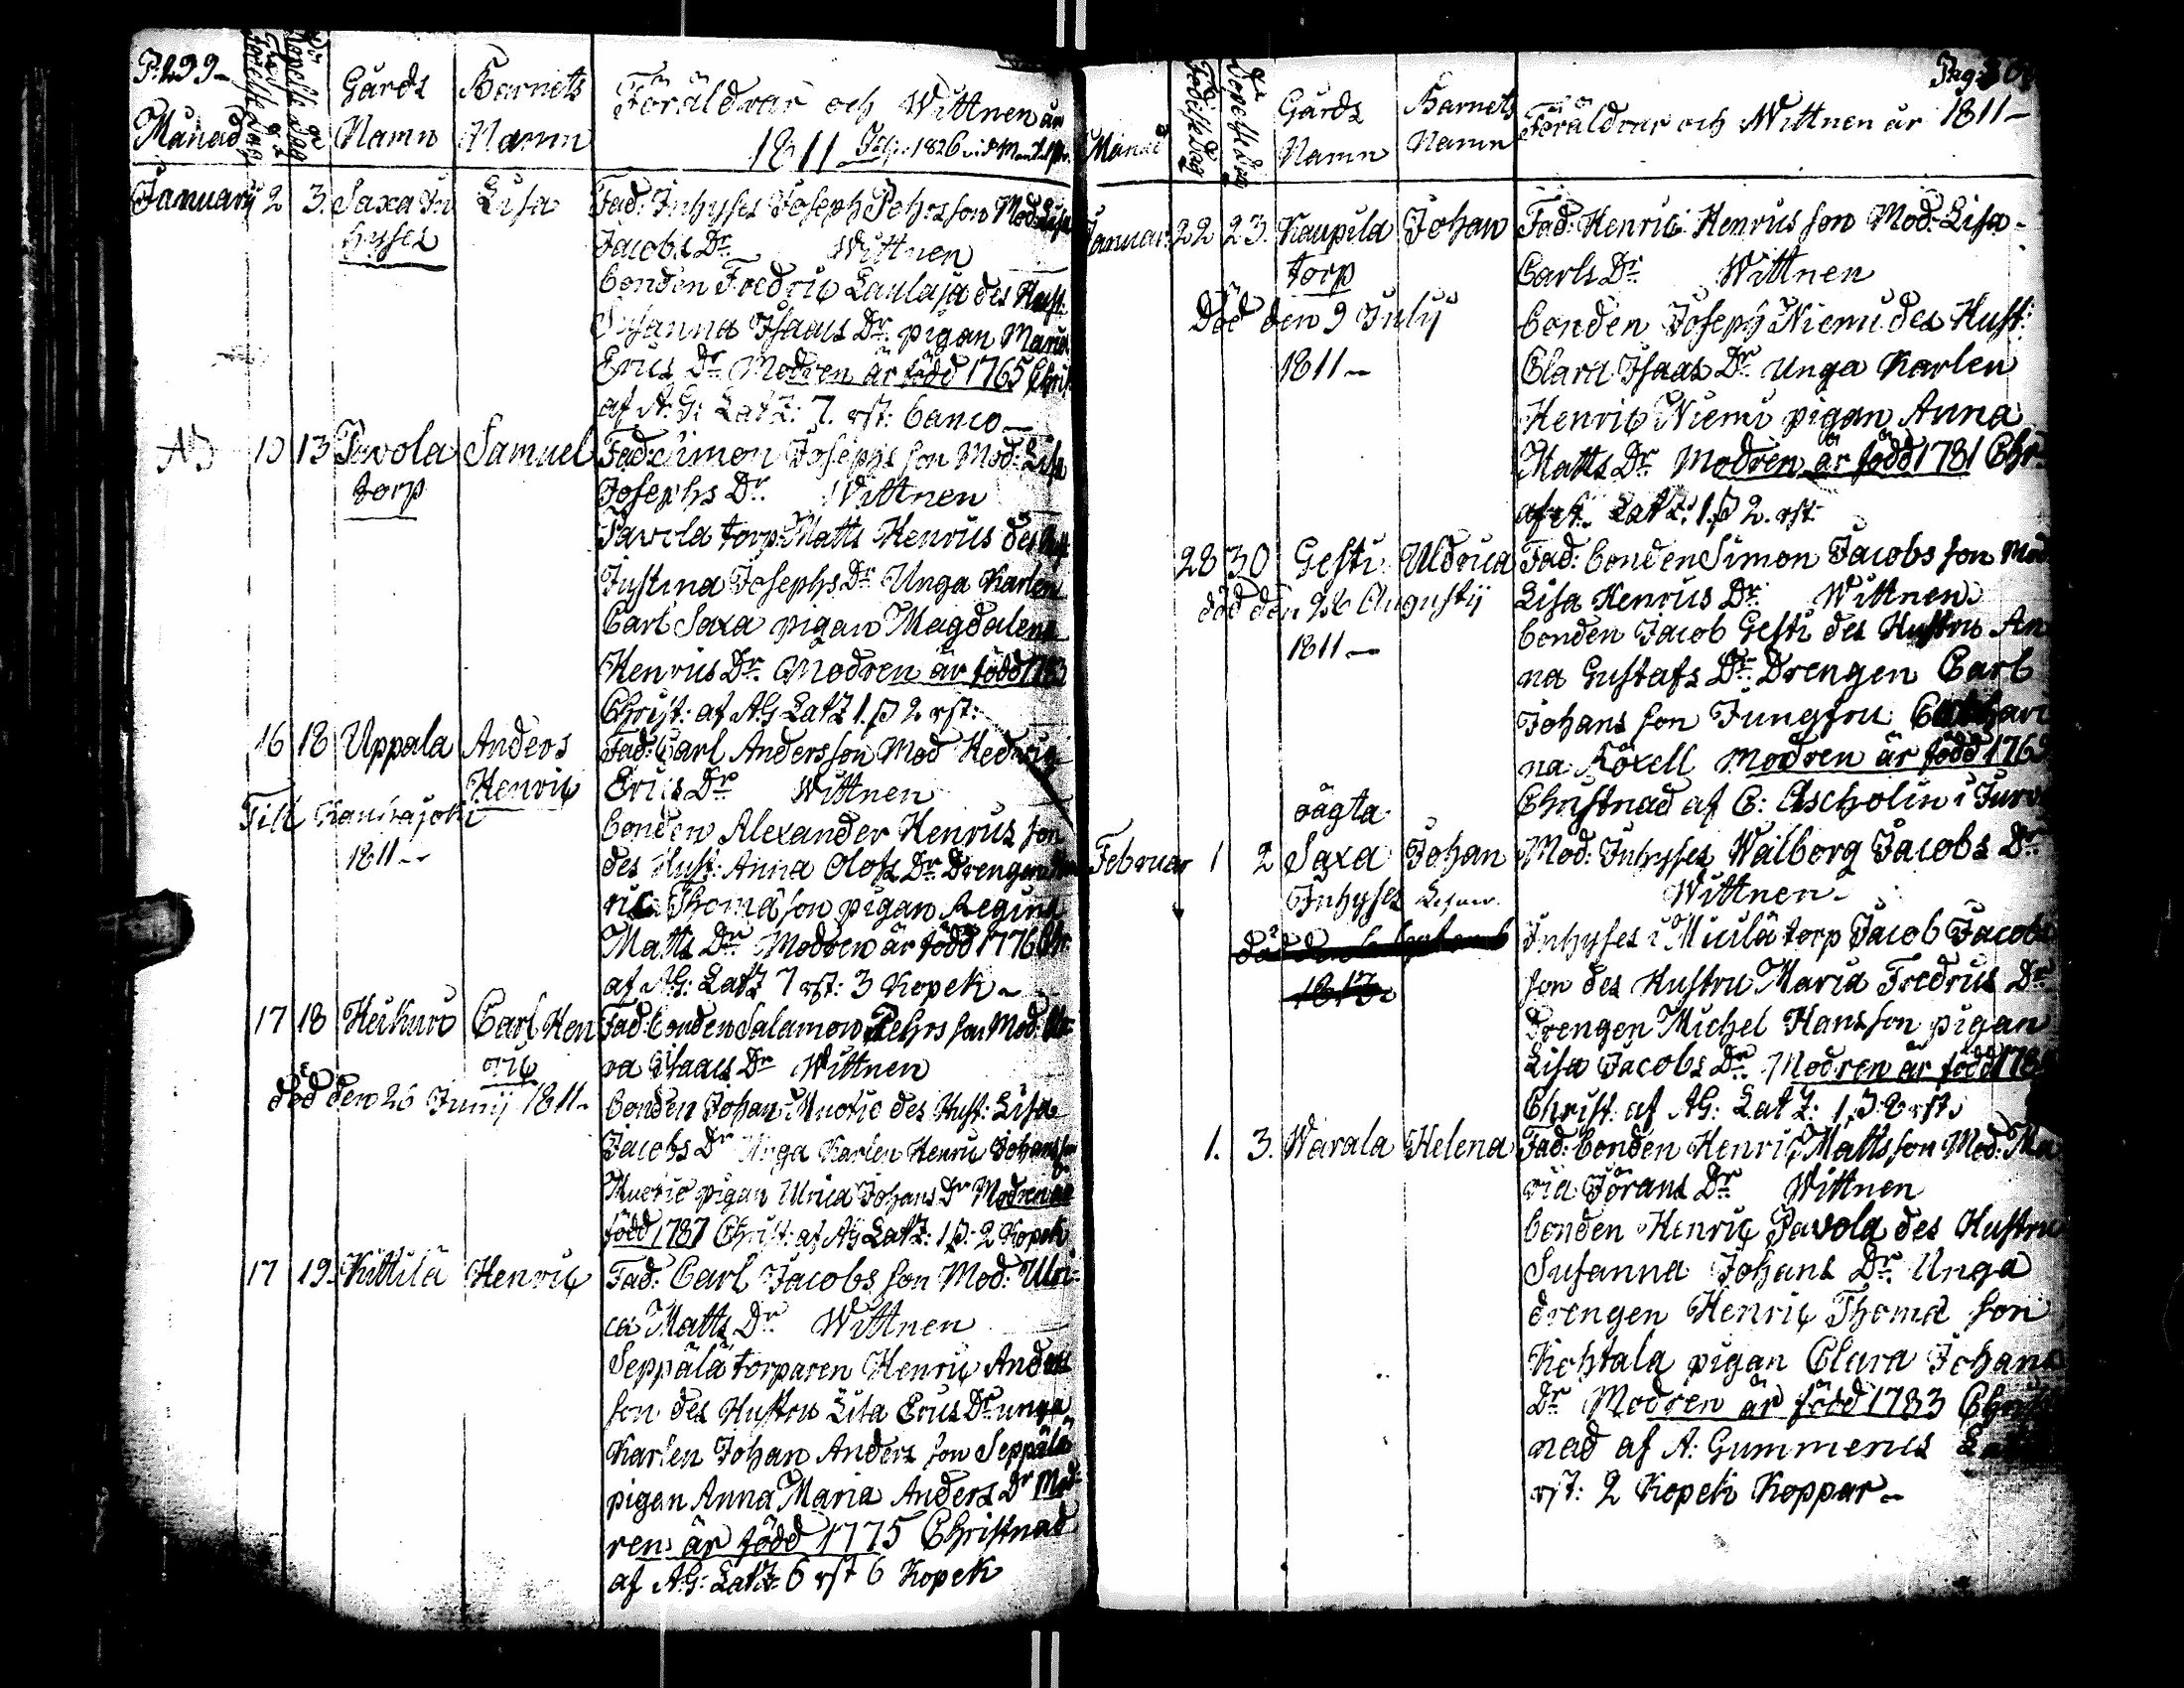 P: 299-
Månad
Födelse Dag
Döpelse Dag
Gårds Namn
Barnets Namn
Föräldrar och Wittnen år
1811
Januarij 2 3. Saxa In
hyses
Lisa
Fad: Inhyses Joseph Pehrs son Mod: Lisa
Jacobs Dr. Wittnen
bonden Fredric Laulaja des Hust:
Susanna Isaacs Dr. pigan Maria
Erics Dr. Modren är född 1765 Christ
af A: G: Lat Z: 7. rst: banco
AD 10 13 Pavola
torp
Samuel
Fad: Simon Josephs son Mod: Lisa
Josephs Dr. Wittnen
Pavola torp: Matts Henrics des Hust
Justina Josephs Dr. Unga Karlen
Carl Saxa pigan Magdalena
Henrics Dr. Modren är född 1783
Christ: af AG Lat Z 1. β 2 rst:
16 18 Uppala Anders
Henric
Till Kauhajoki
1811
Fad: Carl Andersson Mod Hedvig
Erics Dr Wittnen
bonden Alexander Henrics son
des Hust: Anna Olofs Dr. Drengen Hen
ric Thomä son pigan Regina
Matts Dr. Modren är född 1776 Chr:
af AG: Lat Z 7 rst: 3 Kopek
17 18 Heikuri Carl Hen
ric
död den 26 Junij 1811-
Fad: bonden Salamon Pehrs son Mod:
ra Isaacs Dr Wittnen
bonden Johan Muotio des Hust: Lisa
Jacobs Dr Unga Karlen Henric Johans son
Muotio pigan Ulrica Johans Dr Modren är
född 1787 Christ: af AG Lat Z: 1 β: 2 Kopek
17 19. Kittilä Henric
Fad: Carl Jacobs son Mod: Ulri
ca Matts Dr Wittnen
Seppälä torparen Henric Anders
son des Hustru Lisa Erics Dr unga
Karlen Johan Anders son Seppälä
pigan Anna Maria Anders Dr Mod
ren är född 1775 Christnad
af AG: Lat Z: 6 rst 6 Kopek
Pag: 300
Månad
Födelse Dag
Döpelse Dag
Gårds Namn
Barnets Namn
Föräldrar och Wittnen år 1811-
Januar: 22 23. Kaupila
torp
Johan
Död den 9 Julij
1811-
Fad: Henric Henrics son Mod: Lisa
Carls Dr Wittnen
bonden Joseph Niemi des Hust:
Clara Isaacs Dr. Unga Karlen
Henric Niemi pigan Anna
Matts Dr. Modren är född 1781 Chr.
af A: Lat Z: 1. β 2. rst:
28 30 Gesti Uldrica
död den 26 Augustij
1811-
Fad: bonden Simon Jacobs son Mod
Lisa Henrics Dr: Wittnen
bonden Jacob Gesti des Hustru An
na Gustafs Dr. Drengen Carl
Johans son Jungfru Cathari
na Roxell Modren är född 176
Christnad af C: Ascholin i Jurva
oägta
Februar 1 2 Saxa
Inhyses
Johan
Mod: Inhyses Walborg Jacobs Dr
Wittnen
Inhyses i Miculä torp Jacob Jacobs
son des Hustru Maria Fredrics Dr
Drengen Michel Hans son pigan
Lisa Jacobs Dr. Modren är född 178
Christ: af AG: Lat Z: 1. β. 2 rst.
1. 3. Warala Helena
Fad: bonden Henric Matts son Mod: Ma
ria Jörans Dr Wittnen
bonden Henric Pavola des Hustru
Susanna Johans Dr. Unga
drengen Henric Thomä son
Kohtala pigan Clara Johans
Dr. Modren är född 1783 Christ
nad af A: Gummerus
rst: 2 Kopek Koppar-